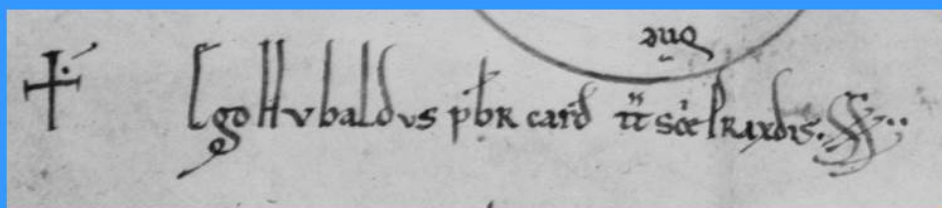 † Ego Hvbaldvs pbr card tt sce Praxdis. SS